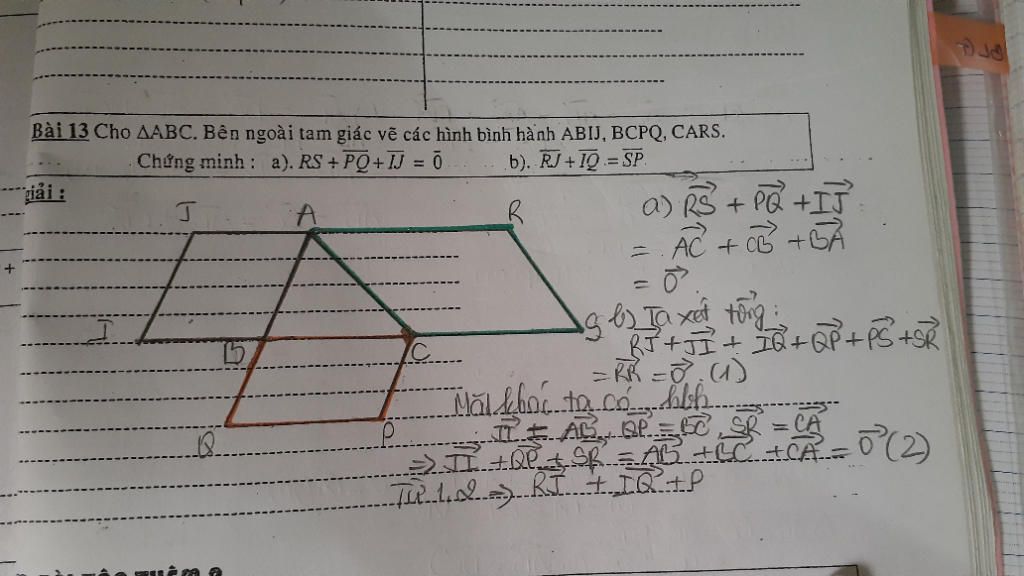 Bài 13 Cho ΔABC. Bên ngoài tam giác vẽ các hình bình hành ABIJ, BCPQ, CARS.
Chứng minh : a). RS + PQ + IJ = 0 b). RJ + IQ = SP
giải :
J A R
I B C S
Q P
a) RS + PQ + IJ
= AC + CB + BA
= 0
b) Ta xét tổng:
RJ + JI + IQ + QP + PS + SR
= RR = 0 (1)
Mặt khác ta có hbh
JI = AB, QP = BC, SR = CA
=> JI + QP + SR = AB + BC + CA = 0 (2)
Từ 1,2 => RJ + IQ + P